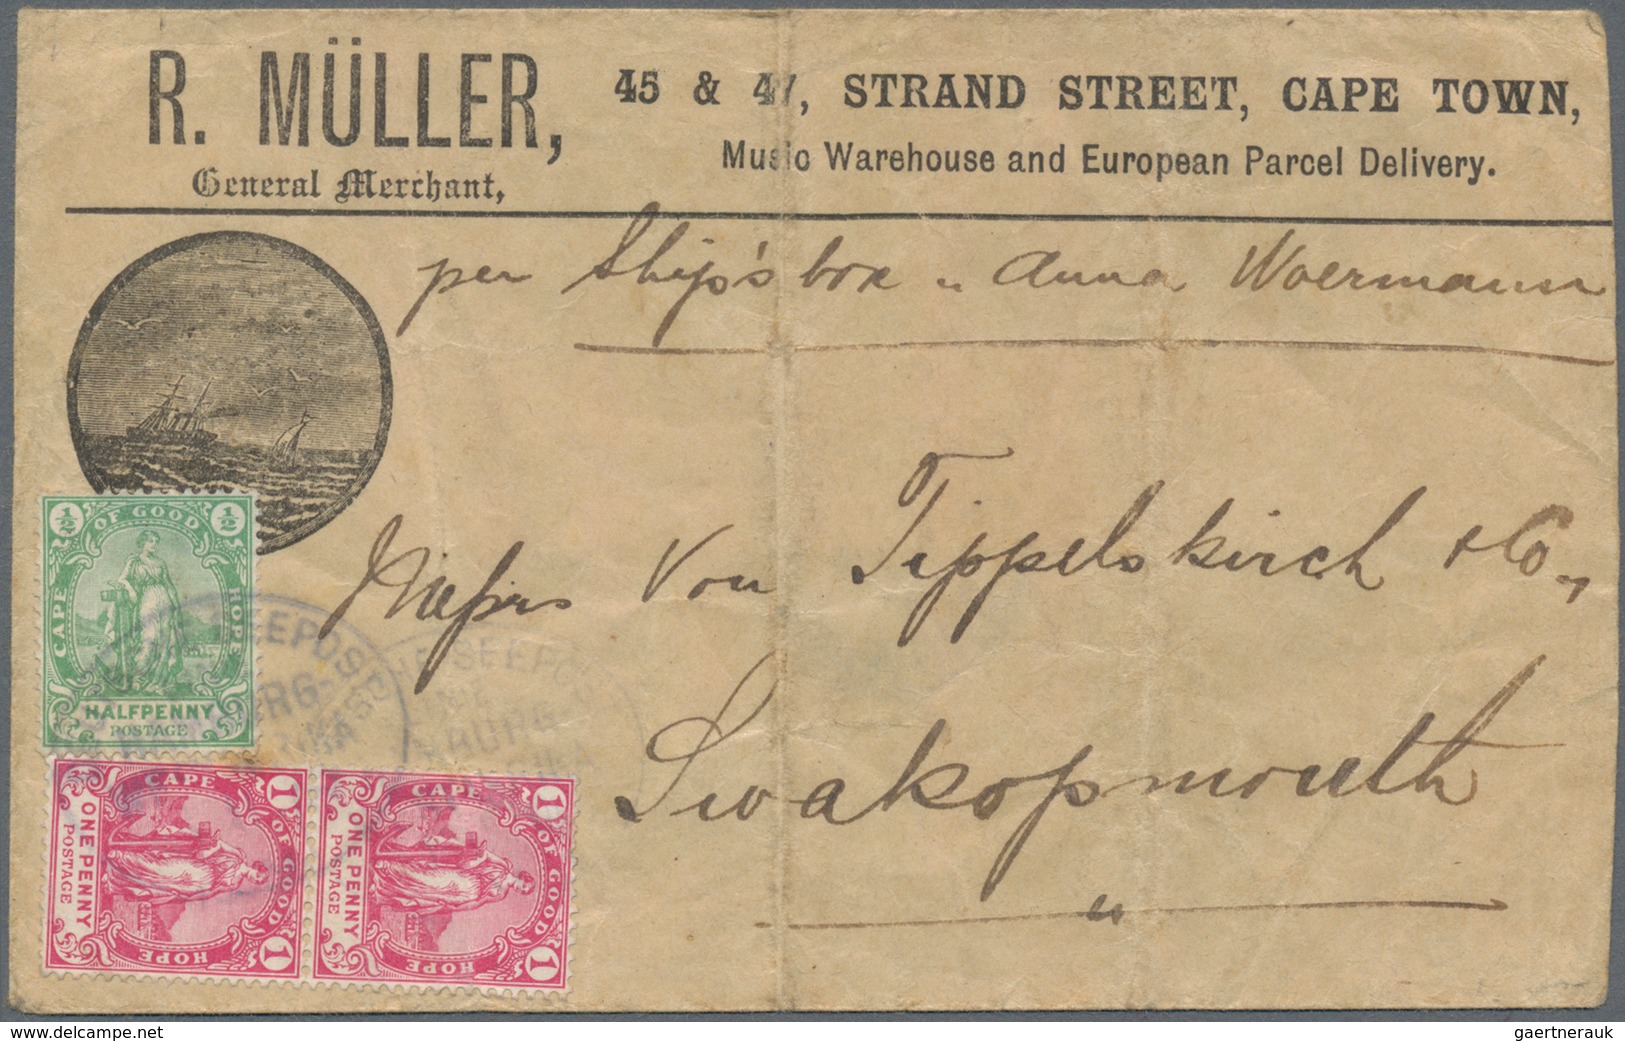 R. MÜLLER,
General Merchant,
45 & 47, STRAND STREET, CAPE TOWN,
Music Warehouse and European Parcel Delivery.
per Ship's box „ Anna Woermann
Messrs Von Tippelskirch & Co.,
Swakopmouth
"
CAPE OF GOOD HOPE
½ ½
HALFPENNY
POSTAGE
SEEPOST
CAPE OF GOOD HOPE
1 1
ONE PENNY
POSTAGE
CAPE OF GOOD HOPE
1 1
ONE PENNY
POSTAGE
www.delcampe.net
gaertnerauk